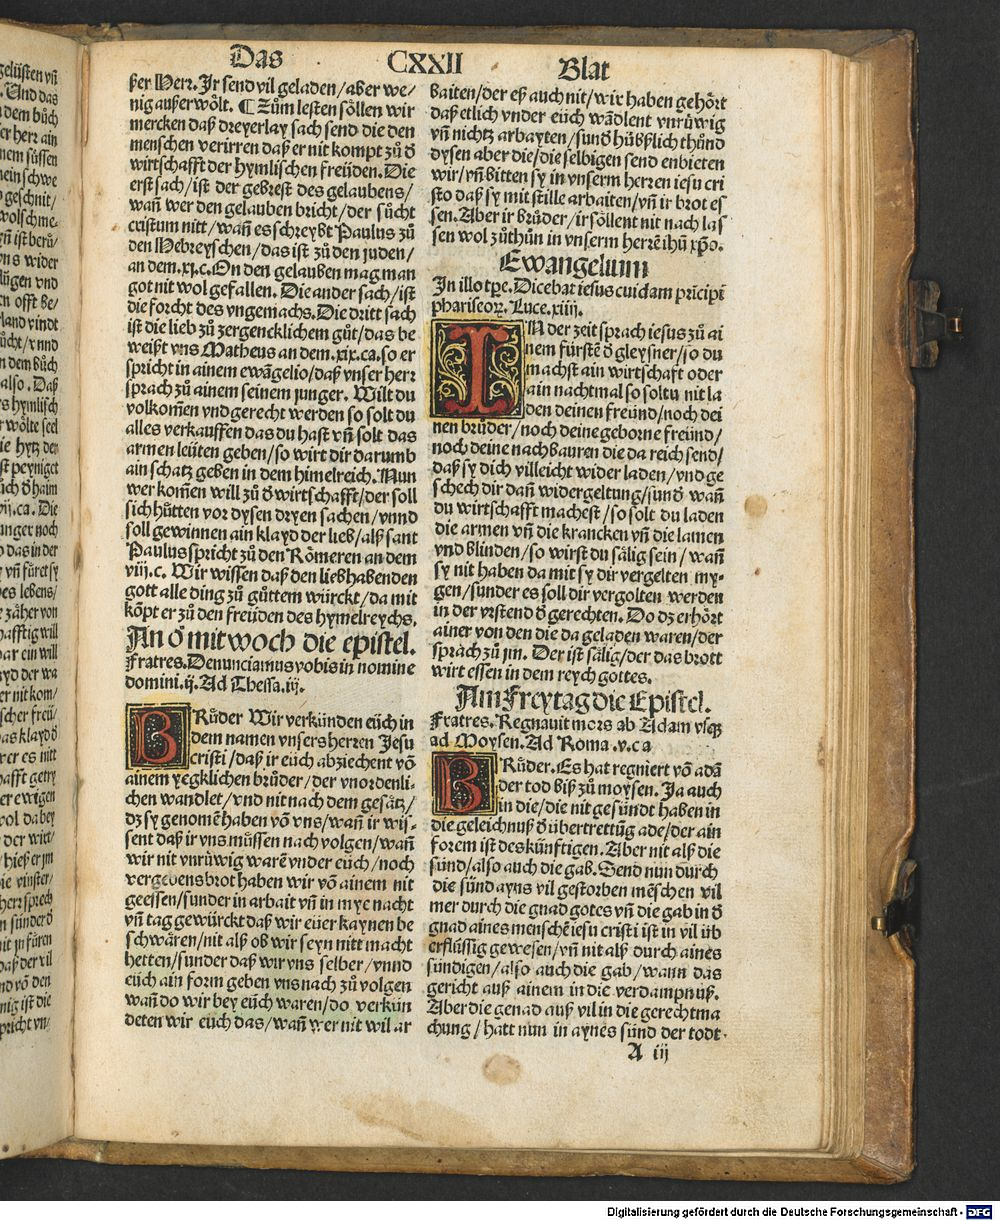 Das CXXII Blat
ßer Herr. Ir send vil geladen/aber we/
nig außerwölt. ☾ Zům lesten söllen wir
mercken daß dreyerlay sach send die den
menschen verirren daß er nit kompt zů d̄
wirtschafft der hymlischen freüden. Die
erst sach/ist der gebrest des gelaubens/
wañ wer den gelauben bricht/der sůcht
cristum nitt/wañ es schreybt Paulus zů
den Hebreyschen/das ist zů den juden/
an dem .xj.c. On den gelauben mag man
got nit wol gefallen. Die ander sach/ist
die forcht des vngemachs. Die dritt sach
ist die lieb zů zergencklichem gůt/das be
weißt vns Matheus an dem .xix.ca. so er
spricht in ainem ewãgelio/daß vnser herr
sprach zů ainem seinem junger. Wilt du
volkom̃en vnd gerecht werden so solt du
alles verkauffen das du hast vñ solt das
armen leüten geben/so wirt dir darumb
ain schatz geben in dem himelreich. Nun
wer kom̃en will zů d̄ wirtschafft/der soll
sich hütten vor dysen dryen sachen/vnnd
soll gewinnen ain klayd der lieb/alß sant
Paulus spricht zů den Römeren an dem
viij.c. Wir wissen daß den liebhabenden
gott alle ding zů gůttem würckt/da mit
kõpt er zů den freüden des hymelreychs.
An d̄ mitwoch die epistel.
Fratres. Denunciamus vobis in nomine
domini. ij. Ad Thessa. iij.
BRůder Wir verkünden eüch in
dem namen vnsers herren Jesu
cristi/daß ir eüch abziechent võ
ainem yegklichen brůder/der vnordenli/
chen wandlet/vnd nit nach dem gesätz/
dz sy genomẽ haben võ vns/wañ ir wis/
sent daß ir vns můssen nach volgen/wañ
wir nit vnrůwig warẽ vnder eüch/noch
vergebens brot haben wir võ ainem nit
geessen/sunder in arbait vñ in mye nacht
vñ tag gewürckt daß wir eüer kaynen be
schwären/nit alß ob wir seyn nitt macht
hetten/sunder daß wir vns selber/vnnd
eüch ain form geben vns nach zů volgen
wañ do wir bey eüch waren/do verkün
deten wir eüch das/wañ wer nit wil ar
baiten/der eß auch nit/wir haben gehört
daß etlich vnder eüch wãdlent vnrůwig
vñ nichtz arbayten/sund̄ hübschlich thůnd
dysen aber die/die selbigen send enbieten
wir/vñ bitten sy in vnserm herren iesu cri
sto daß sy mit stille arbaiten/vñ ir brot es
sen. Aber ir brůder/ir söllent nit nach las
sen wol zů thůn in vnserm herrẽ ihũ xp̃o.
Ewangelium
In illo tp̃e. Dicebat iesus cuidam prĩcipi
phariseorꝝ. Luce. xiiij.
IN der zeit sprach iesus zů ai
nem fürstẽ d̄ gleyßner/so du
machst ain wirtschaft oder
ain nachtmal so soltu nit la
den deinen freünd/noch dei
nen brůder/noch deine geborne freünd/
noch deine nachbauren die da reich send/
daß sy dich villeicht wider laden/vnd ge
schech dir dañ widergeltung/sund̄ wañ
du wirtschafft machest/so solt du laden
die armen vñ die krancken vñ die lamen
vnd blinden/so wirst du sälig sein/wañ
sy nit haben da mit sy dir vergelten my/
gen/sunder es soll dir vergolten werden
in der vrstend d̄ gerechten. Do dz erhört
ainer von den die da geladen waren/der
sprach zů jm. Der ist sälig/der das brott
wirt essen in dem reych gottes.
Am Freytag die Epistel.
Fratres. Regnauit mors ab Adam vsꝗ
ad Moysen. Ad Roma. v. ca
BRůder. Es hat regniert võ adã
der tod biß zů moysen. Ja auch
in die/die nit gesündt haben in
die geleichnuß d̄ übertrettũg ade/der ain
forem ist des künftigen. Aber nit alß die
sünd/also auch die gab. Send nun durch
die sünd ayns vil gestorben mẽschen vil
mer durch die gnad gotes vñ die gab in d̄
gnad aines menschẽ iesu cristi ist in vil üb
erflüssig gewesen/vñ nit alß durch aines
sündigen/also auch die gab/wann das
gericht auß ainem in die verdampnuß.
Aber die genad auß vil in die gerechtma
chung/hatt nun in aynes sünd der todt
A iij
Digitalisierung gefördert durch die Deutsche Forschungsgemeinschaft - DFG